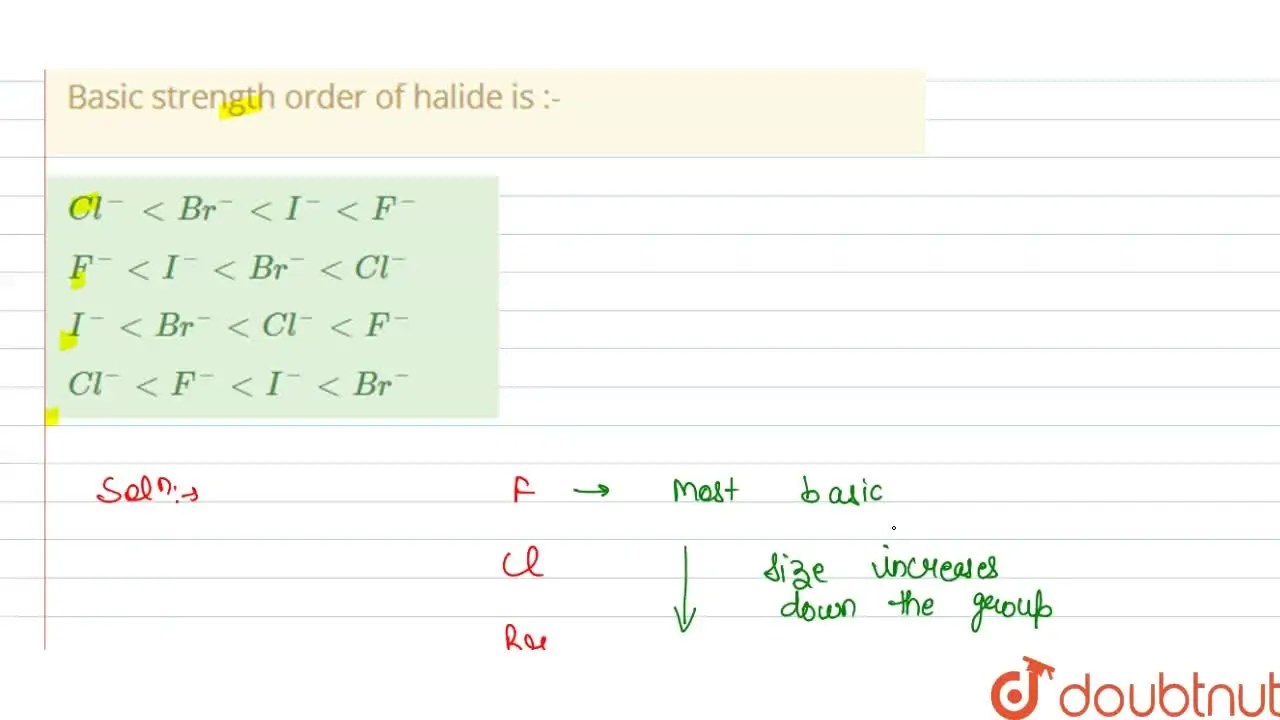 Basic strength order of halide is :-
Cl⁻ < Br⁻ < I⁻ < F⁻
F⁻ < I⁻ < Br⁻ < Cl⁻
I⁻ < Br⁻ < Cl⁻ < F⁻
Cl⁻ < F⁻ < I⁻ < Br⁻
Solⁿ:→ F → Most basic
Cl ↓ size increases
down the group
Br
doubtnut